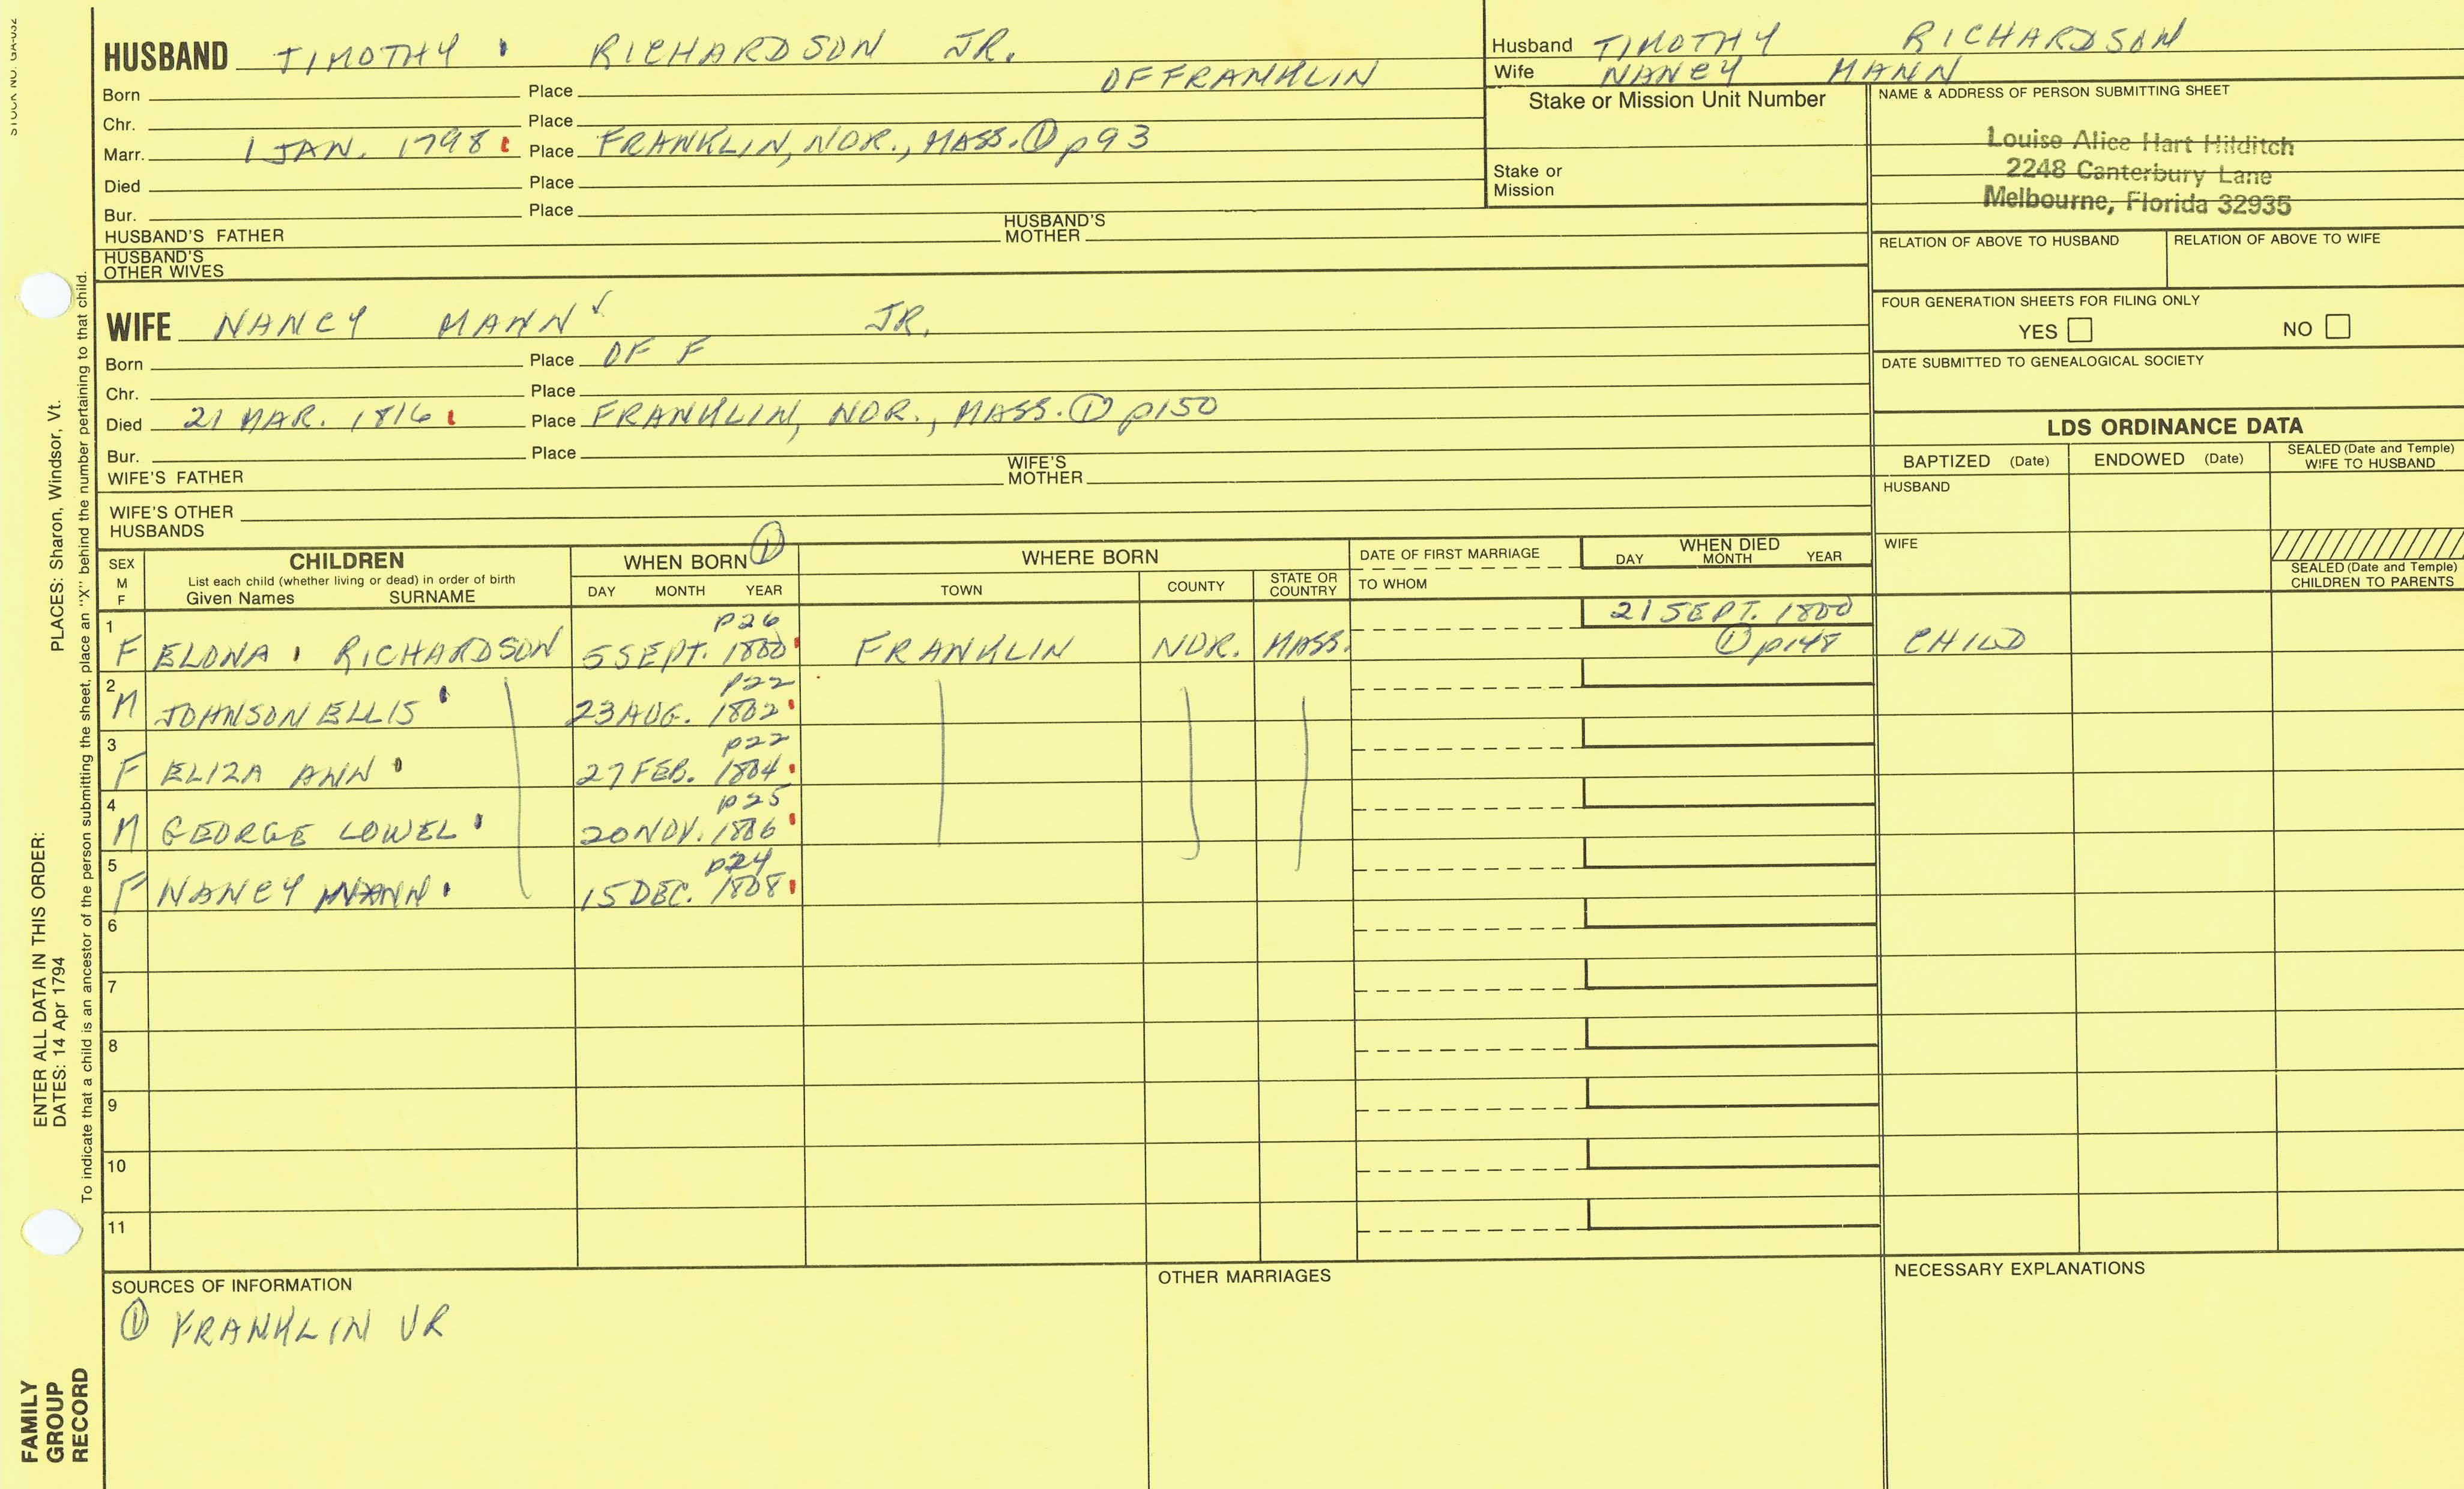 STOCK NO. GA-032
HUSBAND TIMOTHY RICHARDSON JR.
Born Place OF FRANKLIN
Chr. Place
Marr. 1 JAN. 1798 Place FRANKLIN, NOR., MASS. ① p93
Died Place
Bur. Place
HUSBAND'S FATHER HUSBAND'S MOTHER
HUSBAND'S OTHER WIVES
Husband TIMOTHY RICHARDSON
Wife NANCY MANN
Stake or Mission Unit Number
Stake or
Mission
NAME & ADDRESS OF PERSON SUBMITTING SHEET
Louise Alice Hart Hilditch
2248 Canterbury Lane
Melbourne, Florida 32935
RELATION OF ABOVE TO HUSBAND RELATION OF ABOVE TO WIFE
FOUR GENERATION SHEETS FOR FILING ONLY
YES NO
DATE SUBMITTED TO GENEALOGICAL SOCIETY
WIFE NANCY MANN ✓ JR.
Born Place OF F
Chr. Place
Died 21 MAR. 1816 Place FRANKLIN, NOR., MASS. ① p150
Bur. Place
WIFE'S FATHER WIFE'S MOTHER
WIFE'S OTHER HUSBANDS
LDS ORDINANCE DATA
BAPTIZED (Date) ENDOWED (Date) SEALED (Date and Temple) WIFE TO HUSBAND
HUSBAND
WIFE
SEALED (Date and Temple) CHILDREN TO PARENTS
SEX M F CHILDREN WHEN BORN ① WHERE BORN DATE OF FIRST MARRIAGE WHEN DIED
List each child (whether living or dead) in order of birth
Given Names SURNAME DAY MONTH YEAR TOWN COUNTY STATE OR COUNTRY TO WHOM DAY MONTH YEAR
1 p26 21 SEPT. 1800
F ELONA RICHARDSON 5 SEPT. 1800 FRANKLIN NOR. MASS. ① p148 CHILD
2 p22
M JOHNSON ELLIS 23 AUG. 1802
3 p22
F ELIZA ANN 27 FEB. 1804
4 p25
M GEORGE LOWEL 20 NOV. 1806
5 p24
F NANCY MANN 15 DEC. 1808
6
7
8
9
10
11
SOURCES OF INFORMATION OTHER MARRIAGES NECESSARY EXPLANATIONS
① FRANKLIN VR
ENTER ALL DATA IN THIS ORDER: PLACES: Sharon, Windsor, Vt.
DATES: 14 Apr 1794
To indicate that a child is an ancestor of the person submitting the sheet, place an "X" behind the number pertaining to that child.
FAMILY
GROUP
RECORD